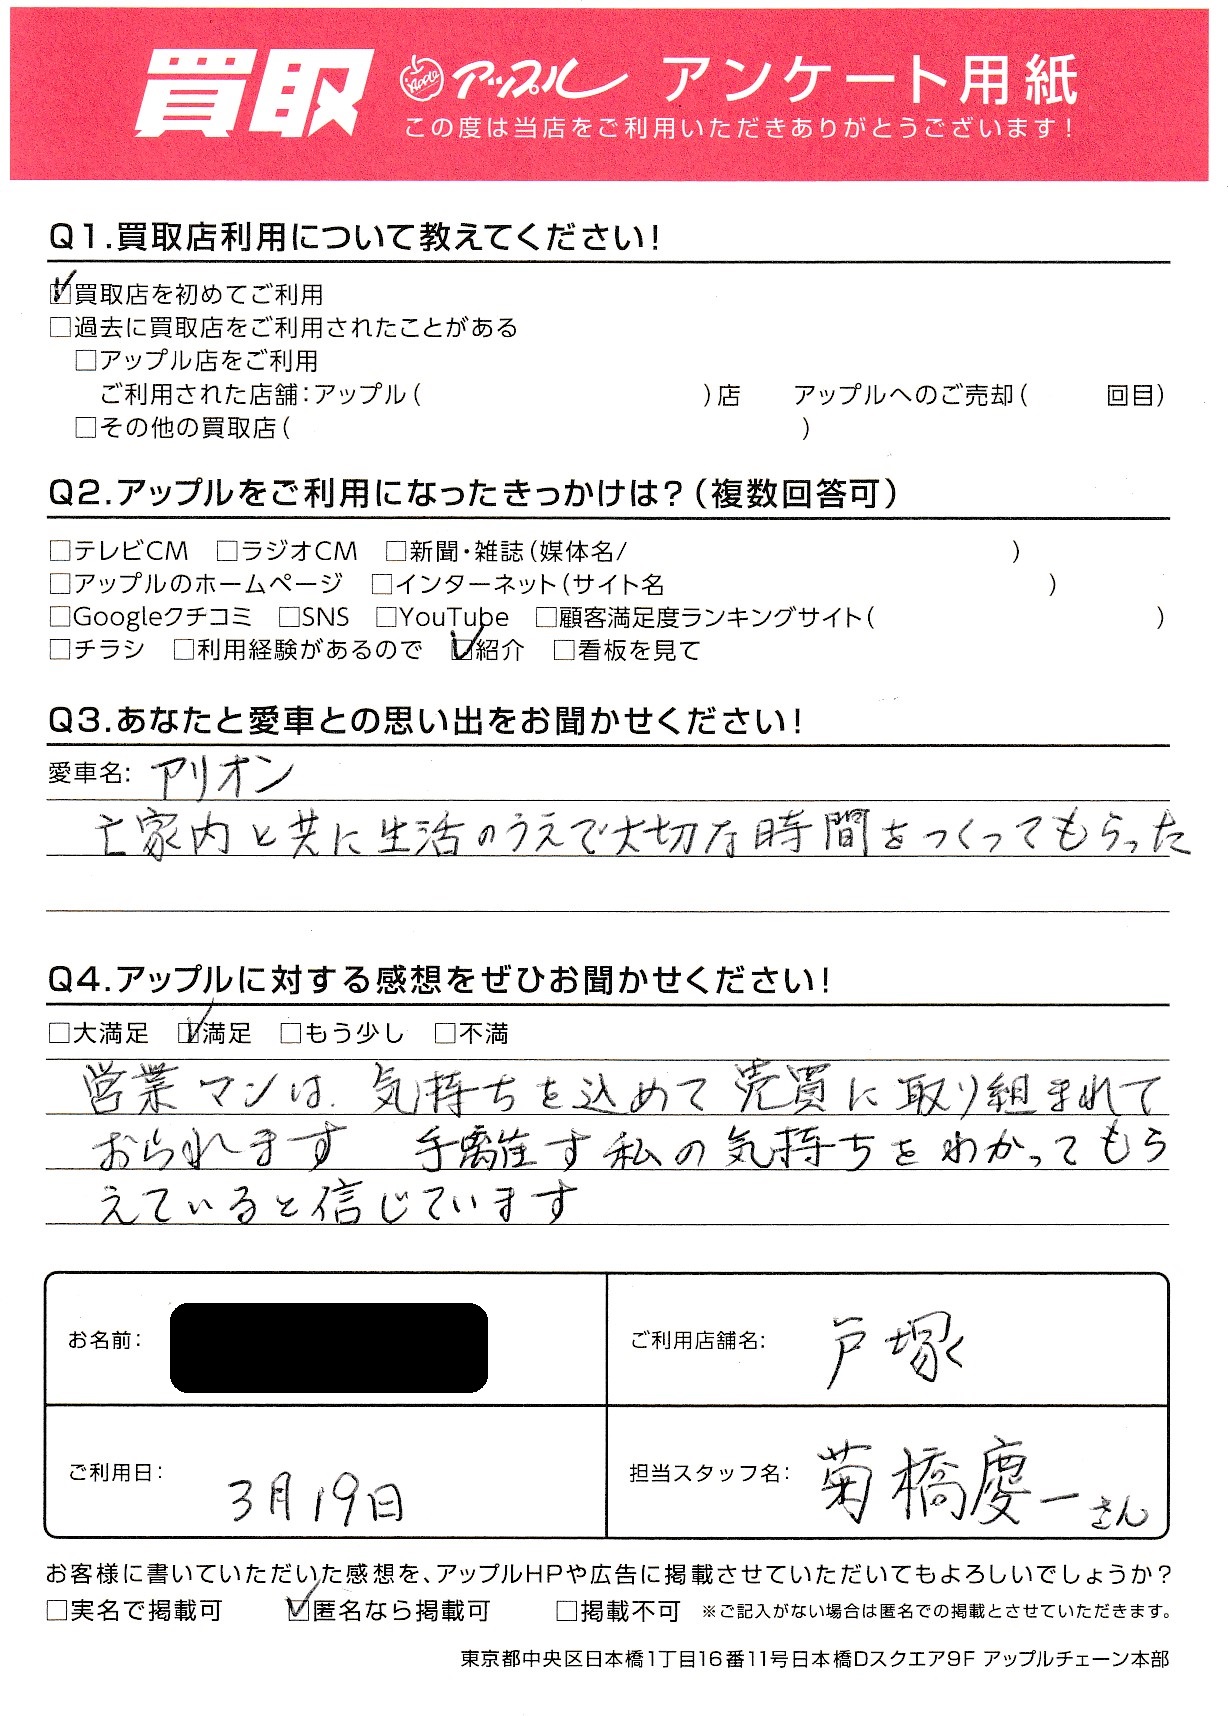 買取 Apple アップル アンケート用紙
この度は当店をご利用いただきありがとうございます!
Q1.買取店利用について教えてください!
☑買取店を初めてご利用
□過去に買取店をご利用されたことがある
□アップル店をご利用
ご利用された店舗:アップル( )店 アップルへのご売却( 回目)
□その他の買取店( )
Q2.アップルをご利用になったきっかけは?(複数回答可)
□テレビCM □ラジオCM □新聞・雑誌(媒体名/ )
□アップルのホームページ □インターネット(サイト名 )
□Googleクチコミ □SNS □YouTube □顧客満足度ランキングサイト( )
□チラシ □利用経験があるので ☑紹介 □看板を見て
Q3.あなたと愛車との思い出をお聞かせください!
愛車名: アリオン
亡家内と共に生活のうえで大切な時間をつくってもらった
Q4.アップルに対する感想をぜひお聞かせください!
□大満足 ☑満足 □もう少し □不満
営業マンは、気持ちを込めて売買に取り組まれて
おられます 手離す私の気持ちをわかってもら
えていると信じています
お名前: ご利用店舗名: 戸塚
ご利用日: 3月19日 担当スタッフ名: 菊橋慶一さん
お客様に書いていただいた感想を、アップルHPや広告に掲載させていただいてもよろしいでしょうか?
□実名で掲載可 ☑匿名なら掲載可 □掲載不可 ※ご記入がない場合は匿名での掲載とさせていただきます。
東京都中央区日本橋1丁目16番11号日本橋Dスクエア9F アップルチェーン本部